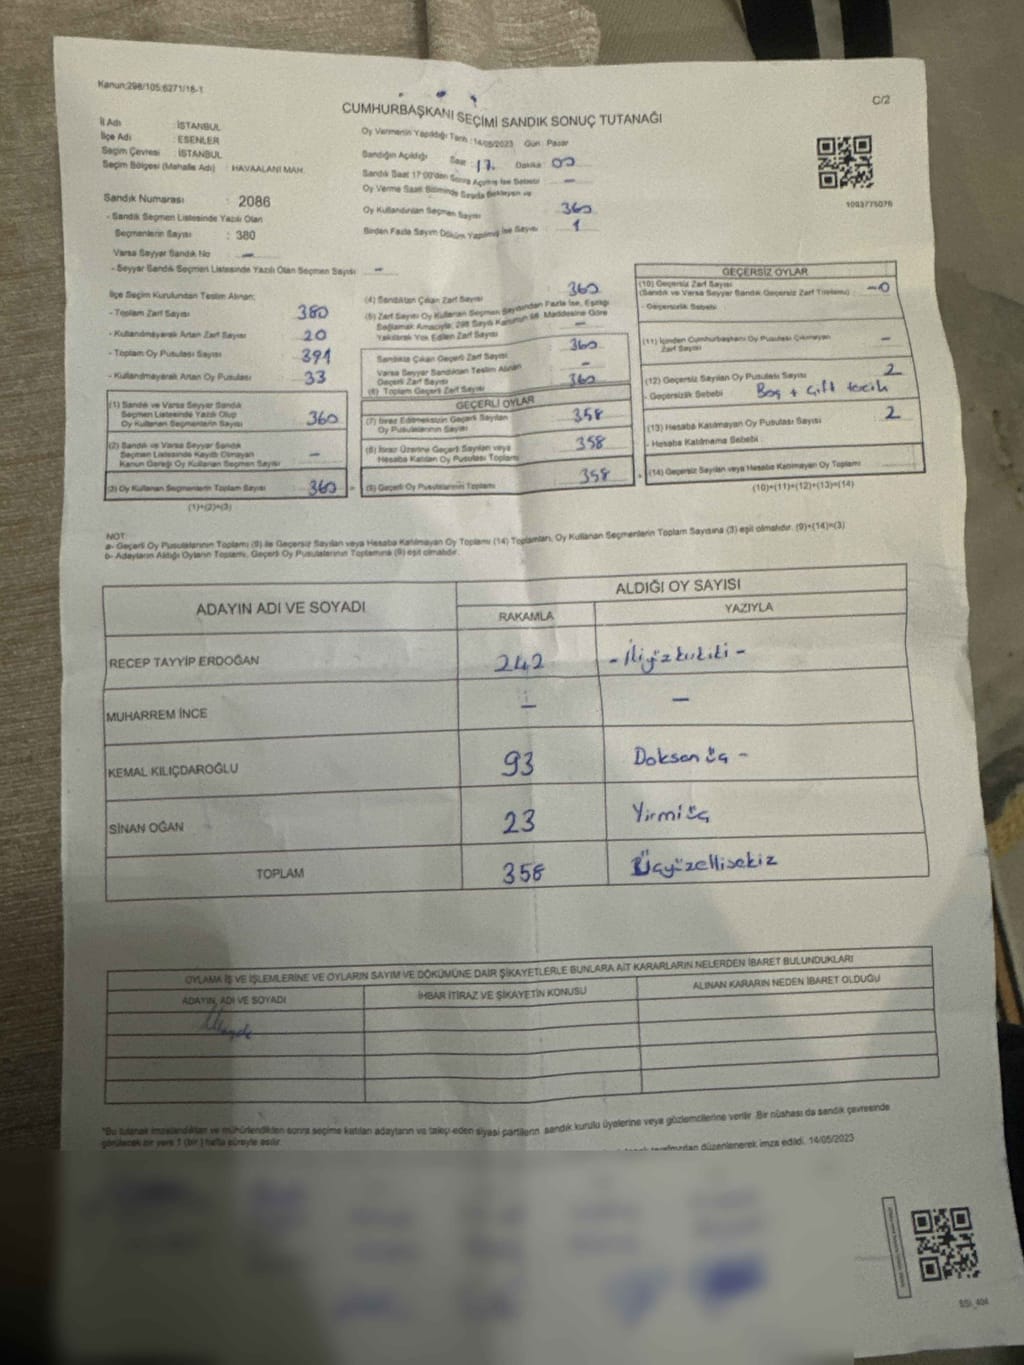 Kanun:298/105;6271/18-1
C/2
CUMHURBAŞKANI SEÇİMİ SANDIK SONUÇ TUTANAĞI
İl Adı : İSTANBUL
İlçe Adı : ESENLER
Seçim Çevresi : İSTANBUL
Seçim Bölgesi (Mahalle Adı) : HAVAALANI MAH.
Sandık Numarası : 2086
- Sandık Seçmen Listesinde Yazılı Olan
Seçmenlerin Sayısı : 380
Varsa Seyyar Sandık No –
- Seyyar Sandık Seçmen Listesinde Yazılı Olan Seçmen Sayısı –
Oy Vermenin Yapıldığı Tarih : 14/05/2023 Gün : Pazar
Sandığın Açıldığı Saat : 17. Dakika : 00
Sandık Saat 17:00'den Sonra Açılmış İse Sebebi –
Oy Verme Saati Bitiminde Sırada Bekleyen ve
Oy Kullandırılan Seçmen Sayısı 360
Birden Fazla Sayım Döküm Yapılmış İse Sayısı : 1
1093775076
İlçe Seçim Kurulundan Teslim Alınan;
- Toplam Zarf Sayısı 380
- Kullanılmayarak Artan Zarf Sayısı 20
- Toplam Oy Pusulası Sayısı 391
- Kullanılmayarak Artan Oy Pusulası 33
(1) Sandık ve Varsa Seyyar Sandık
Seçmen Listesinde Yazılı Olup
Oy Kullanan Seçmenlerin Sayısı 360
(2) Sandık ve Varsa Seyyar Sandık
Seçmen Listesinde Kayıtlı Olmayan
Kanun Gereği Oy Kullanan Seçmen Sayısı –
(3) Oy Kullanan Seçmenlerin Toplam Sayısı 360
(1)+(2)=(3)
(4) Sandıktan Çıkan Zarf Sayısı 360
(5) Zarf Sayısı Oy Kullanan Seçmen Sayısından Fazla İse, Eşitliği
Sağlamak Amacıyla; 298 Sayılı Kanunun 98. Maddesine Göre
Yakılarak Yok Edilen Zarf Sayısı –
Sandıkta Çıkan Geçerli Zarf Sayısı 360
Varsa Seyyar Sandıktan Teslim Alınan
Geçerli Zarf Sayısı –
(6) Toplam Geçerli Zarf Sayısı 360
GEÇERLİ OYLAR
(7) İtiraz Edilmeksizin Geçerli Sayılan
Oy Pusulalarının Sayısı 358
(8) İtiraz Üzerine Geçerli Sayılan veya
Hesaba Katılan Oy Pusulası Toplamı 358
(9) Geçerli Oy Pusulalarının Toplamı 358
GEÇERSİZ OYLAR
(10) Geçersiz Zarf Sayısı
(Sandık ve Varsa Seyyar Sandık Geçersiz Zarf Toplamı) –0
- Geçersizlik Sebebi
(11) İçinden Cumhurbaşkanı Oy Pusulası Çıkmayan
Zarf Sayısı –
(12) Geçersiz Sayılan Oy Pusulası Sayısı 2
- Geçersizlik Sebebi Boş + çift tercih
(13) Hesaba Katılmayan Oy Pusulası Sayısı 2
- Hesaba Katılmama Sebebi
(14) Geçersiz Sayılan veya Hesaba Katılmayan Oy Toplamı
(10)+(11)+(12)+(13)=(14)
NOT:
a- Geçerli Oy Pusulalarının Toplamı (9) ile Geçersiz Sayılan veya Hesaba Katılmayan Oy Toplamı (14) Toplamları, Oy Kullanan Seçmenlerin Toplam Sayısına (3) eşit olmalıdır. (9)+(14)=(3)
b- Adayların Aldığı Oyların Toplamı, Geçerli Oy Pusulalarının Toplamına (9) eşit olmalıdır.
ADAYIN ADI VE SOYADI
ALDIĞI OY SAYISI
RAKAMLA YAZIYLA
RECEP TAYYİP ERDOĞAN 242 - İkiyüzkırkiki -
MUHARREM İNCE – –
KEMAL KILIÇDAROĞLU 93 Doksanüç -
SİNAN OĞAN 23 Yirmiüç
TOPLAM 358 Üçyüzellisekiz
OYLAMA İŞ VE İŞLEMLERİNE VE OYLARIN SAYIM VE DÖKÜMÜNE DAİR ŞİKAYETLERLE BUNLARA AİT KARARLARIN NELERDEN İBARET BULUNDUKLARI
ADAYIN, ADI VE SOYADI İHBAR İTİRAZ VE ŞİKAYETİN KONUSU ALINAN KARARIN NEDEN İBARET OLDUĞU
*Bu tutanak imzalandıktan ve mühürlendikten sonra seçime katılan adayların ve talep eden siyasi partilerin sandık kurulu üyelerine veya gözlemcilerine verilir. Bir nüshası da sandık çevresinde
görülecek bir yere 1 (bir) hafta süreyle asılır.
tarafımızdan düzenlenerek imza edildi. 14/05/2023